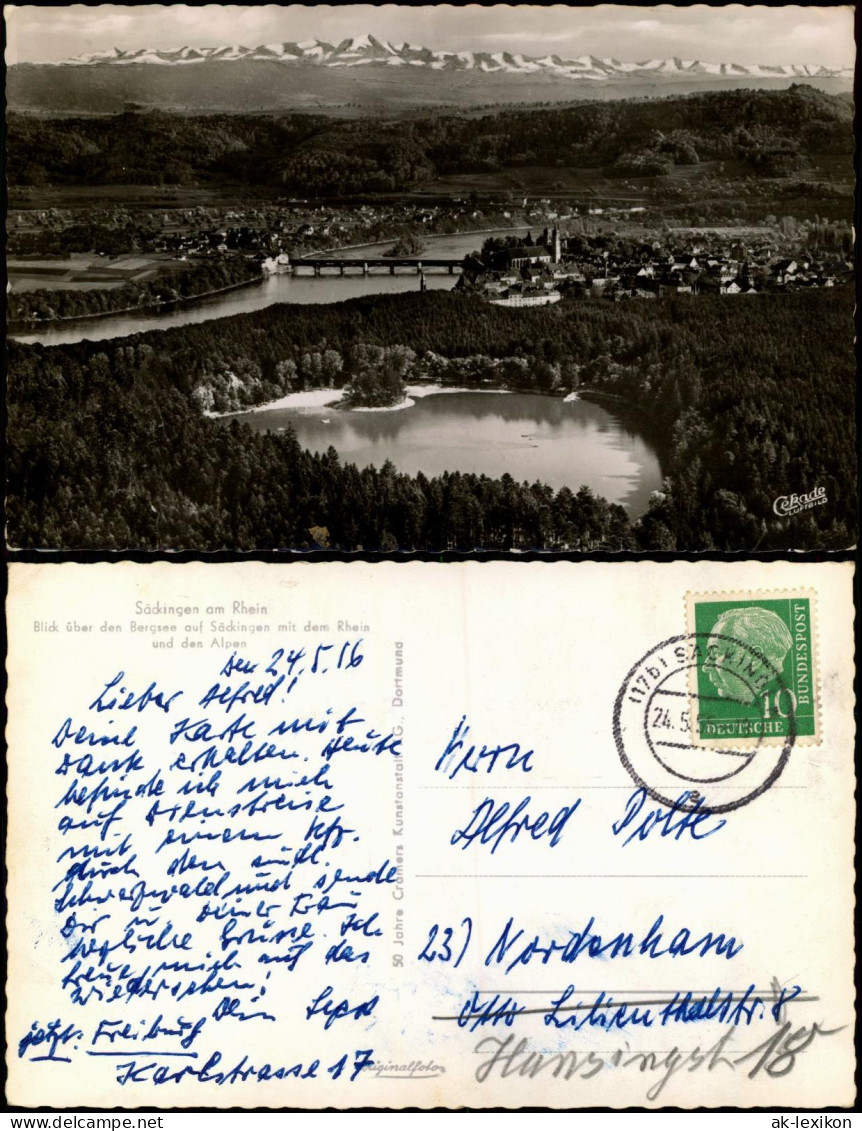 Cekade
LUFTBILD
Säckingen am Rhein
Blick über den Bergsee auf Säckingen mit dem Rhein
und den Alpen
den 24.5.56
Lieber Alfred!
Deine Karte mit
Dank erhalten. Heute
befinde ich mich
auf Dienstreise
mit einem Kfz.
durch den südl.
Schwarzwald und sende
Dir u. Deiner Frau
herzliche Grüsse. Ich
freue mich auf das
Wiedersehen!
Dein Sepp
jetzt: Freiburg
Karlstrasse 17
50 Jahre Cramers Kunstanstalt KG., Dortmund
Originalfoto
BUNDESPOST
10
DEUTSCHE
(17b) SÄCKINGEN
24.5.56
a
Herrn
Alfred Polte
23) Nordenham
Otto Lilienthalstr. 8
Hansingstr 18
www.delcampe.net
ak-lexikon